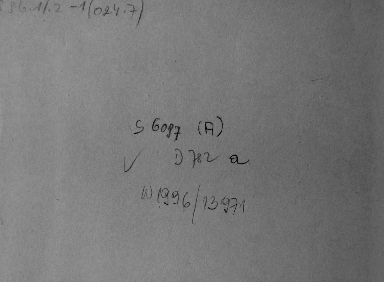 896.1/.2-1(024.7)
S 6097 (A)
✓ D782 a
(A) 1996/13971